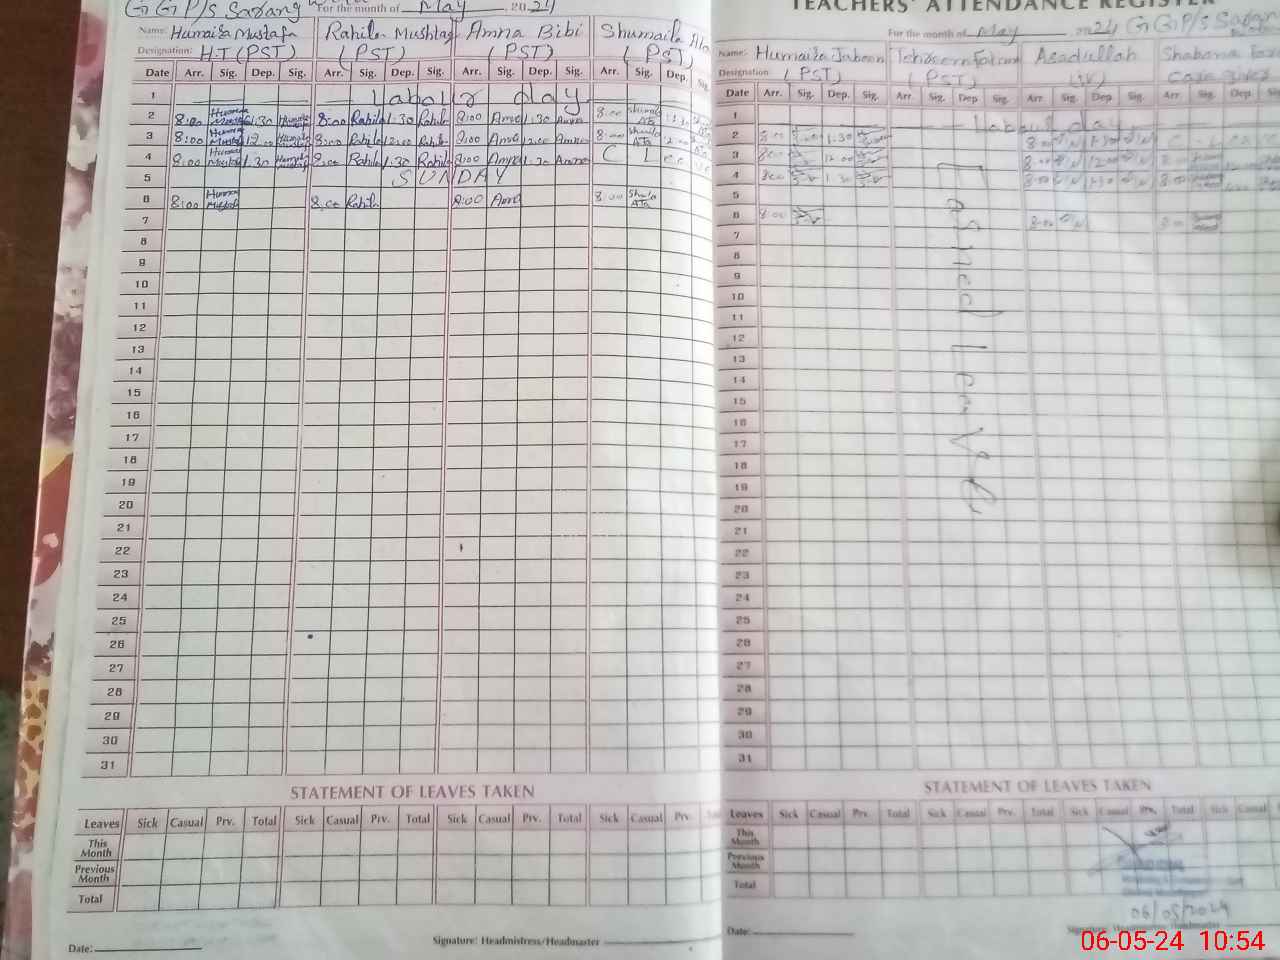 GGP/s Sarang For the month of May, 2024
Name: Humaira Mustafa Rahila Mushtaq Amna Bibi Shumaila Ata
Designation: H.T (PST) (PST) (PST) (PST)
Date Arr. Sig. Dep. Sig. Arr. Sig. Dep. Sig. Arr. Sig. Dep. Sig. Arr. Sig. Dep. Sig.
1 Labour day
2 8:00 Humaira Mustafa 1:30 Humaira Mustafa 8:00 Rahila 1:30 Rahila 8:00 Amna 1:30 Amna 8:00 Shumaila Ata 1:30
3 8:00 Humaira Mustafa 12:00 Humaira Mustafa 8:00 Rahila 12:00 Rahila 8:00 Amna 12:00 Amna 8:00 Shumaila Ata 12:00
4 8:00 Humaira Mustafa 1:30 Humaira Mustafa 8:00 Rahila 1:30 Rahila 8:00 Amna 1:30 Amna C L
5 SUNDAY
6 8:00 Humaira Mustafa 8:00 Rahila 8:00 Amna 8:00 Shumaila Ata
7
8
9
10
11
12
13
14
15
16
17
18
19
20
21
22
23
24
25
26
27
28
29
30
31
STATEMENT OF LEAVES TAKEN
Leaves Sick Casual Prv. Total Sick Casual Prv. Total Sick Casual Prv. Total Sick Casual Prv.
This Month
Previous Month
Total
Date:
Signature: Headmistress/Headmaster
TEACHERS' ATTENDANCE REGISTER
For the month of May 2024 GGP/s Sarang
Name: Humaira Jabeen Asadullah Shabana
Designation (PST) (PST) (IV) Care giver
Date Arr. Sig. Dep. Sig. Arr. Sig. Dep Sig. Arr. Sig. Dep. Sig. Arr. Sig. Dep Sig.
1 Labour day
2 8:00 1:30 8:00 1:30 C L
3 8:00 12:00 8:00 12:00 8:00
4 8:00 1:30 8:00 1:30 8:00
5
6 8:00 8:00 8:00
Earned leave
7
8
9
10
11
12
13
14
15
16
17
18
19
20
21
22
23
24
25
26
27
28
29
30
31
STATEMENT OF LEAVES TAKEN
Leaves Sick Casual Prv. Total Sick Casual Prv. Total Sick Casual Prv. Total Sick Casual
This Month
Previous Month
Total
06/05/2024
Date:
Signature: Headmistress/Headmaster
06-05-24 10:54